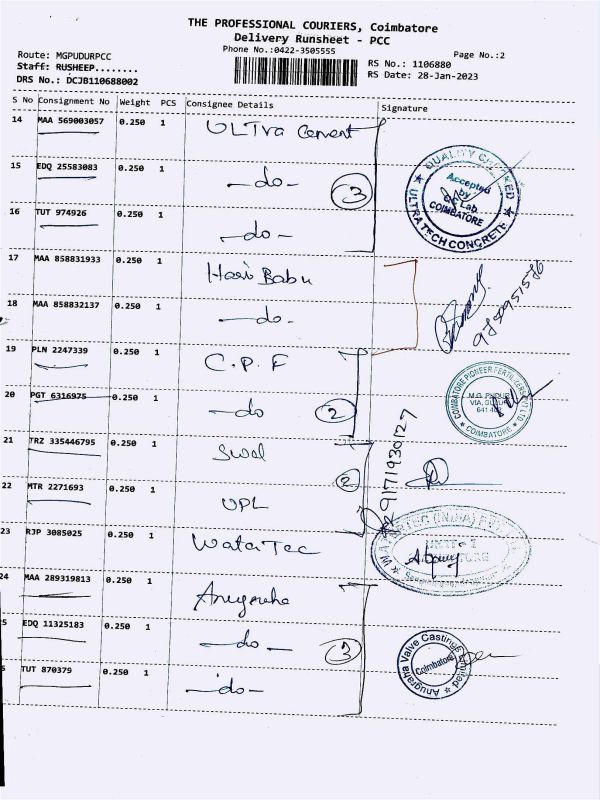 THE PROFESSIONAL COURIERS, Coimbatore
Delivery Runsheet - PCC
Phone No.:0422-3505555
Page No.:2
Route: MGPUDURPCC
Staff: RUSHEEP........
DRS No.: DCJB110688002
RS No.: 1106880
RS Date: 28-Jan-2023
S No Consignment No Weight PCS Consignee Details Signature
14 MAA 569003057 0.250 1 ULTra Cement
15 EDQ 25583083 0.250 1 -do-
3
16 TUT 974926 0.250 1 -do-
QUALITY CHECKED
Accepted
by
QC Lab
COIMBATORE
ULTRATECH CONCRETE
17 MAA 858831933 0.250 1 Hari Babu
18 MAA 858832137 0.250 1 -do-
19 PLN 2247339 0.250 1 C.P.F
20 PGT 6316975 0.250 1 -do
2
COIMBATORE PIONEER FERTILIZERS PVT LTD
M.G. PUDUR
641 402
COIMBATORE
21 TRZ 335446795 0.250 1 Swal
2
22 MTR 2271693 0.250 1 UPL
23 RJP 3085025 0.250 1 WataTec
24 MAA 289319813 0.250 1 Anugraha
5 EDQ 11325183 0.250 1 -do-
3
TUT 870379 0.250 1 -do-
Anugraha Valve Castings Limited
Coimbatore